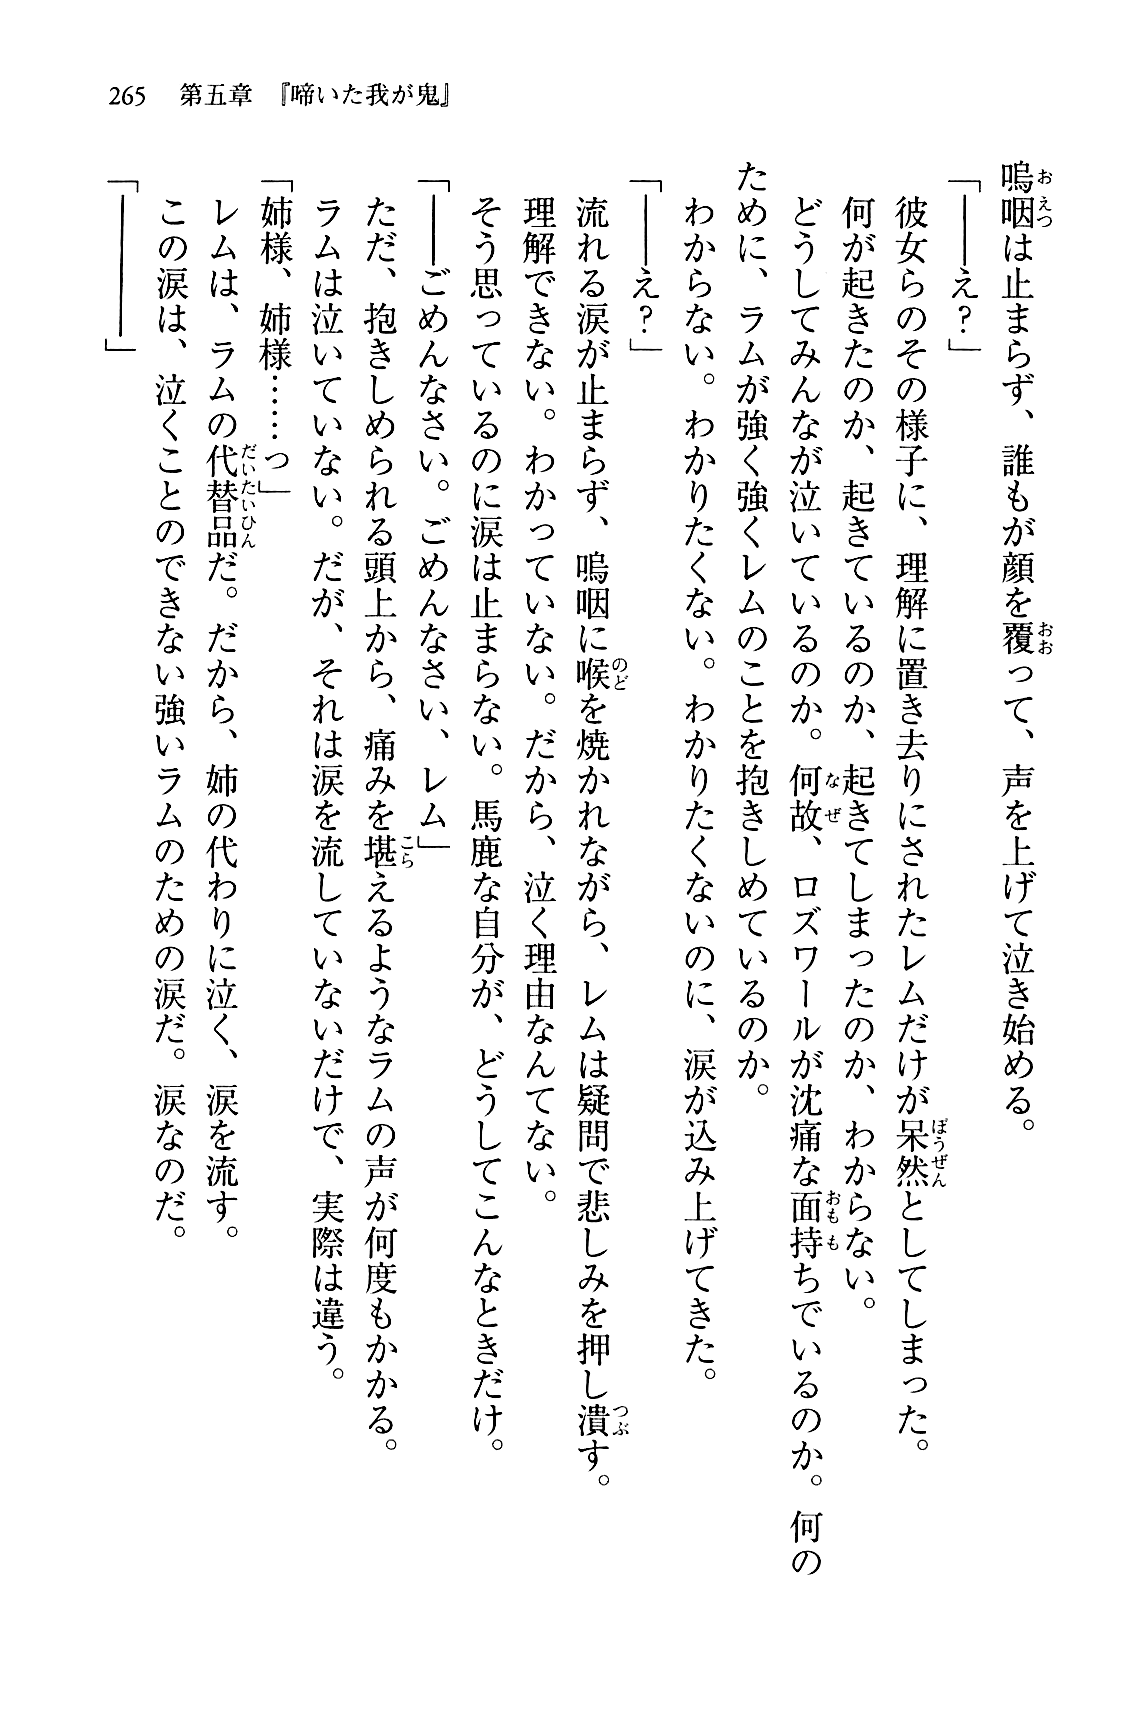 265　第五章　『啼いた我が鬼』
嗚咽は止まらず、誰もが顔を覆って、声を上げて泣き始める。
「――え？」
彼女らのその様子に、理解に置き去りにされたレムだけが呆然としてしまった。
何が起きたのか、起きているのか、起きてしまったのか、わからない。
どうしてみんなが泣いているのか。何故、ロズワールが沈痛な面持ちでいるのか。何の
ために、ラムが強く強くレムのことを抱きしめているのか。
わからない。わかりたくない。わかりたくないのに、涙が込み上げてきた。
「――え？」
流れる涙が止まらず、嗚咽に喉を焼かれながら、レムは疑問で悲しみを押し潰す。
理解できない。わかっていない。だから、泣く理由なんてない。
そう思っているのに涙は止まらない。馬鹿な自分が、どうしてこんなときだけ。
「――ごめんなさい。ごめんなさい、レム」
ただ、抱きしめられる頭上から、痛みを堪えるようなラムの声が何度もかかる。
ラムは泣いていない。だが、それは涙を流していないだけで、実際は違う。
「姉様、姉様……っ」
レムは、ラムの代替品だ。だから、姉の代わりに泣く、涙を流す。
この涙は、泣くことのできない強いラムのための涙だ。涙なのだ。
「――――」